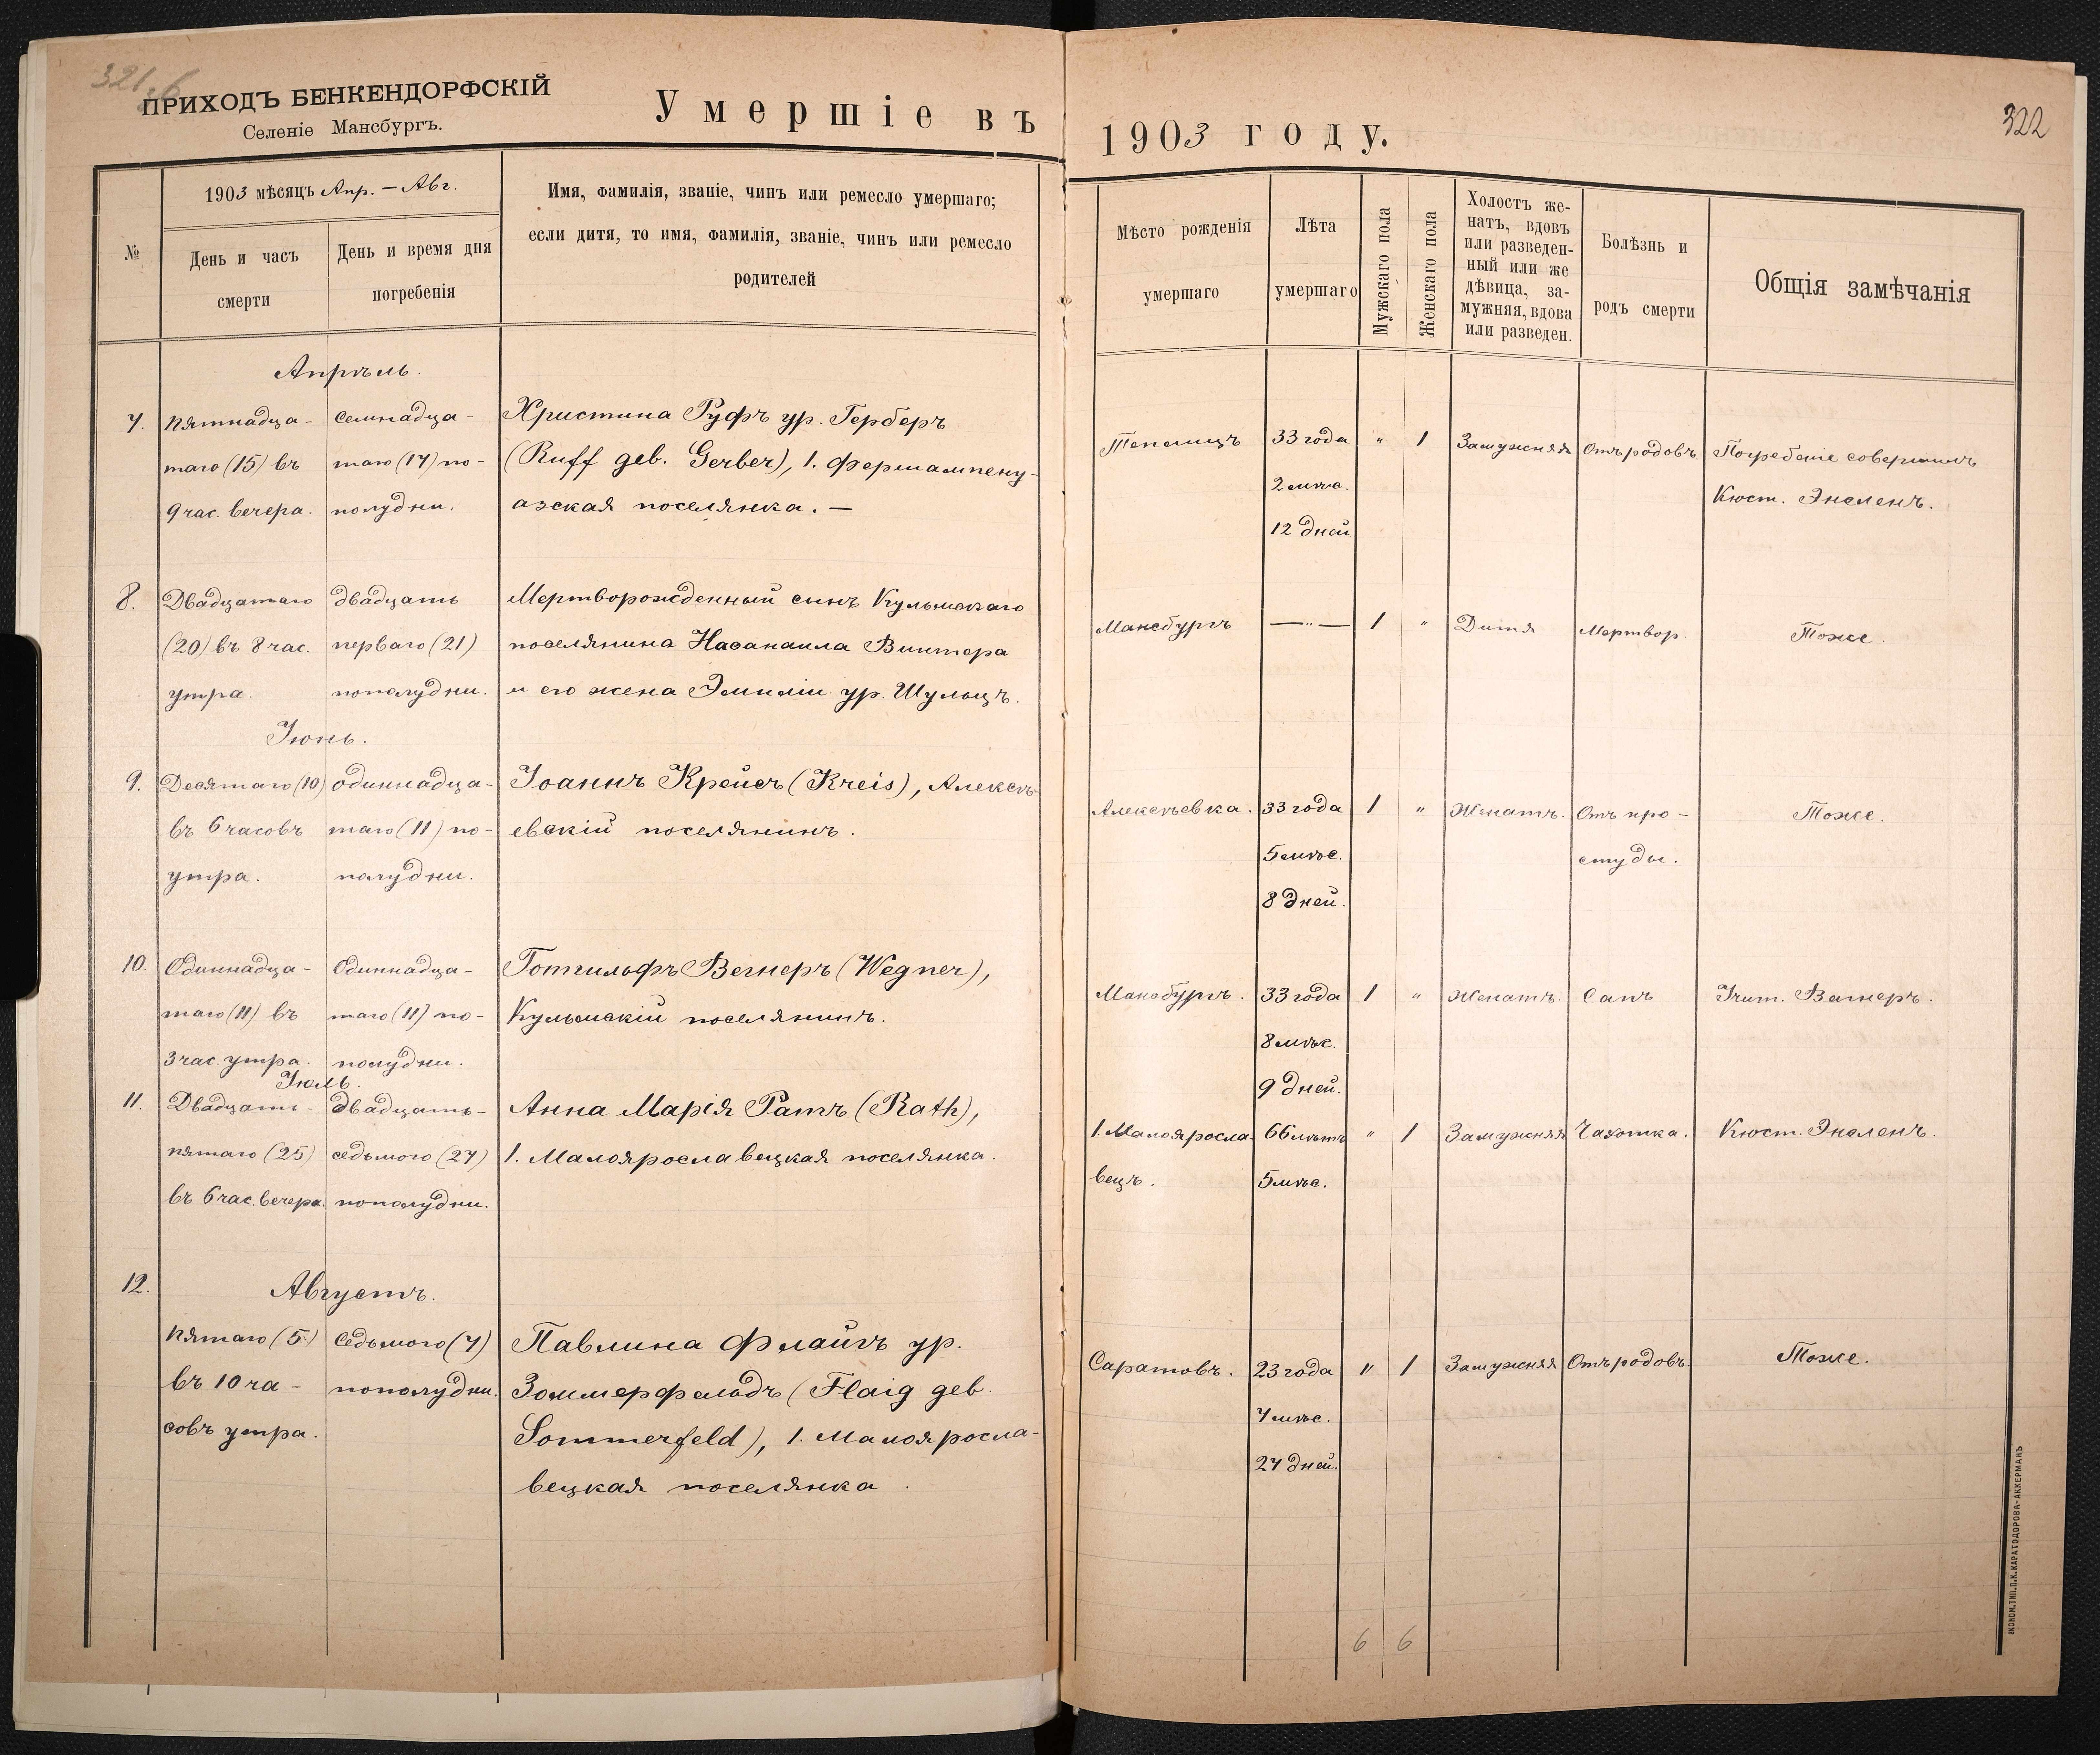 321 б
ПРИХОДЪ БЕНКЕНДОРФСКІЙ
Селеніе Мансбургъ.
Умершіе въ
1903 году.
322
№
1903 мѣсяцъ Апр. — Авг.
День и часъ
смерти
День и время дня
погребенія
Имя, фамилія, званіе, чинъ или ремесло умершаго;
если дитя, то имя, фамилія, званіе, чинъ или ремесло
родителей
Мѣсто рожденія
умершаго
Лѣта
умершаго
Мужскаго пола
Женскаго пола
Холостъ же-
натъ, вдовъ
или разведен-
ный или же
дѣвица, за-
мужняя, вдова
или разведен.
Болѣзнь и
родъ смерти
Общія замѣчанія
Апрѣль.
7.
Пятнадца-
таго (15) въ
9 час. вечера.
Семнадца-
таго (17) по-
полудни.
Христина Руфъ ур. Герберъ
(Ruff geb. Gerber), 1. Фершампену-
азская поселянка. —
Теплицъ
33 года
2 мѣс.
12 дней
"
1
Замужняя
Отъ родовъ.
Погребеніе совершилъ
Кюст. Энсленъ.
8.
Двадцатаго
(20) въ 8 час.
утра.
двадцать
перваго (21)
пополудни.
Мертворожденный сынъ Кульмскаго
поселянина Насанаила Винтера
и его жена Эмиліи ур. Шульцъ.
Мансбургъ
—"—
1
"
Дитя
Мертвор.
Тоже.
Іюнь.
9.
Десятаго (10)
въ 6 часовъ
утра.
одиннадца-
таго (11) по-
полудни.
Іоаннъ Крейсъ (Kreis), Алексѣ-
евскій поселянинъ.
Алексѣевка.
33 года
5 мѣс.
8 дней.
1
"
Женатъ.
Отъ про-
студы.
Тоже.
10.
Одиннадца-
таго (11) въ
3 час. утра.
Одиннадца-
таго (11) по-
полудни.
Готгильфъ Вегнеръ (Wegner),
Кульмскій поселянинъ.
Мансбургъ.
33 года
8 мѣс.
9 дней.
1
"
Женатъ.
Сапъ
Учит. Вагнеръ.
Іюль.
11.
Двадцать-
пятаго (25)
въ 6 час. вечера.
двадцать-
седьмого (27)
пополудни.
Анна Марія Ратъ (Rath),
1. Малоярославецкая поселянка.
1. Малояросла-
вецъ.
66 лѣтъ
5 мѣс.
"
1
Замужняя
Чахотка.
Кюст. Энсленъ.
12.
Августъ.
Пятаго (5)
въ 10 ча-
совъ утра.
Седьмого (7)
пополудни.
Павлина Флайгъ ур.
Зоммерфельдъ (Flaig geb.
Sommerfeld), 1. Малояросла-
вецкая поселянка.
Саратовъ.
23 года
7 мѣс.
27 дней.
"
1
Замужняя
Отъ родовъ.
Тоже.
6 6
ЭКОНОМ. ТИП. П. К. КАРАТОДОРОВА-АККЕРМАНЪ